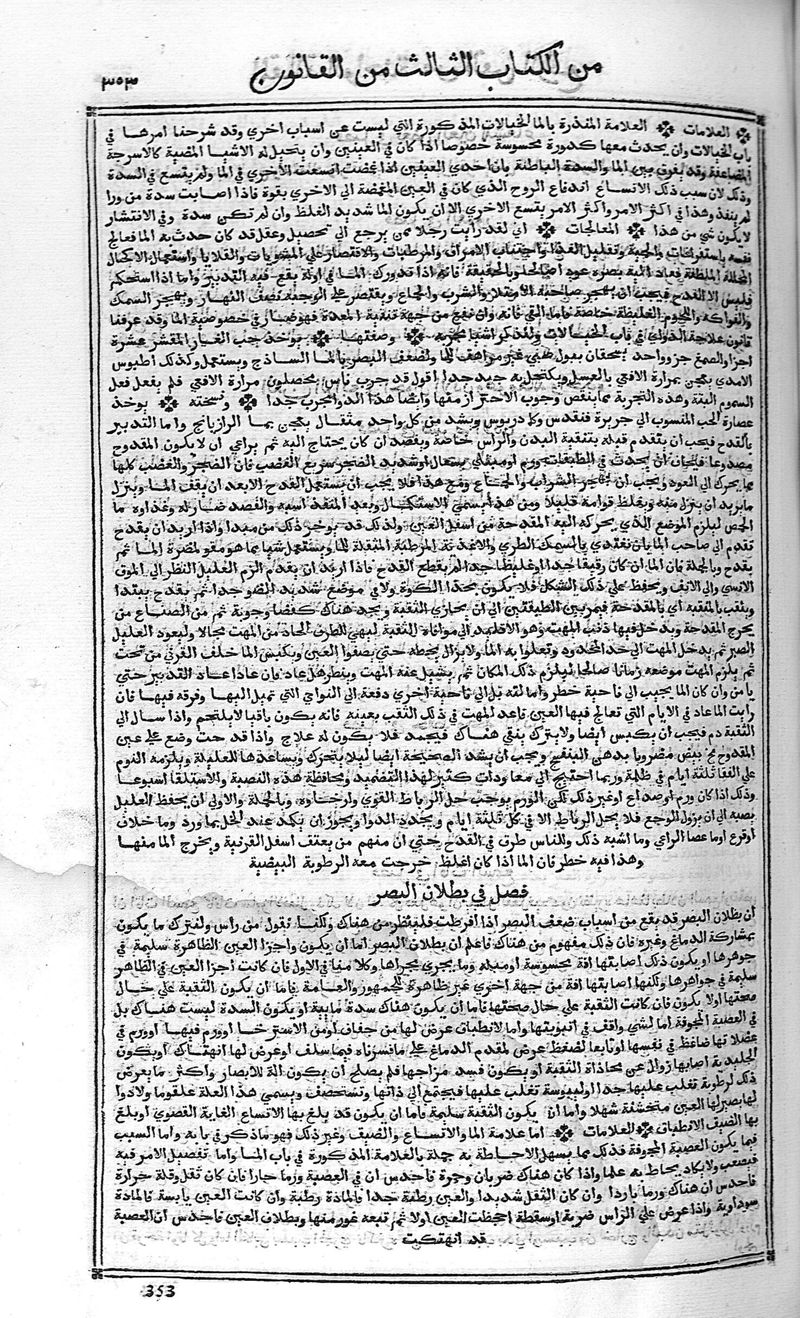 ٣٥٣
من الكتاب الثالث من القانون
العلامات العلامة المنذرة بالما الخيالات المذكورة التي ليست عن اسباب اخري وقد شرحنا امرها في
باب الخيالات وان يحدث معها كدورة محسوسة خصوصا اذا كان في احدي العينين وان يتخيل له الاشيا المضية كالاسرجة
المضاعفة وقد يفرق بين الما والسدة الباطنة بان احدي العينين اذا غمضت اتسعت الاخري في الما ولم يتسع في السدة
وذلك لان سبب ذلك الاتساع اندفاع الروح الذي كان في العين المغمضة الي الاخري بقوة فاذا اصابت سدة من ورا
لم ينفذ وهذا في اكثر الامر واكثر الامر يتسع الاخري الا ان يكون الما شديد الغلظ وان لم تكن سدة وفي الانتشار
لا يكون شي من هذا المعالجات اني لقد رايت رجلا ممن يرجع الي تحصيل وعقل قد كان حدث به الما فعالج
نفسه باستفراغات والحمية وتقليل الغذا واجتناب الامراق والمرطبات والاقتصار علي المشويات والقلايا واستعمال الاكحال
المحللة الملطفة فعاد اليه بصره عودا صالحا وبالحقيقة فانه اذا تدورك الما في اوله نفع فيه التدبير واما اذا استحكم
فليس الا القدح فيجب ان يهجر صاحبه الامتلا والشرب والجماع ويقتصر علي الوجبة نصف النهار ويهجر السمك
والفواكه واللحوم الغليظة خاصة واما القي فانه وان نفع من جهة تنقية المعدة فهو ضار في خصوصية الما وقد عرفنا
قانون علاجة الدوائي في باب الخيالات ولنذكر اشيا مجربة وصفتها يوخذ حب الغار المقشر عشرة
اجزا والصمغ جزو واحد يسحقان ببول صبي غير مراهق للما ولضعف البصر بالما الساذج ويستعمل وكذلك اطيوس
الامدي يعجن بمرارة الافعي بالعسل ويكتحل به جيد جدا اقول قد جرب ناس محصلون مرارة الافعي فلم يفعل فعل
السموم البتة وهذه التجربة مما ينقص وجوب الاحتراز منها وايضا هذا الدوا مجرب جدا ونسخته يوخذ
عصارة الحب المنسوب الي جزيرة فنقدس وكمادريوس وبسد من كل واحد مثقال يعجن بما الرازيانج واما التدبير
بالقدح فيجب ان يتقدم قبله بتنقية البدن والراس خاصة ويفصد ان كان يحتاج اليه ثم يراعي ان لا يكون المقدوح
مصدوعا فيخاف ان يحدث في الطبقات ورم او مبتلي بسعال او شديد الضجر سريع الغضب فان الضجر والغضب كلها
مما يحرك الي العود ويجب ان يهجر الشراب والجماع ومع هذا فلا يجب ان يستعمل القدح الا بعد ان يقف الما وينزل
ما يريد ان ينزل منه ويغلظ قوامه قليلا ومن هذا يسمي الاستكمال وبعد المنقد اسبه والفصد ضار له وغذاوه ما
الحمص ليلزم الموضع الذي يحركه اليه المقدحة من اسفل العين ولذلك قد يوخر ذلك من مبدا واذا اريد ان يقدح
تقدم الي صاحب الما بان يغتدي بالسمك الطري والاغذية المرطبة المثقلة للما ويستعمل شيا مما هو مقو مضرة الما ثم
يقدح وبالجملة فان الما ان كان رقيقا جدا او غليظا جدا لم يقطع القدح فاذا اريد ان يقدح الزم العليل النظر الي الموق
الانسي والي الانف ويحفظ علي ذلك الشكل فلا يكون بحذا الكوة ولا في موضع شديد الضو جدا ثم يقدح يبتدا
ويثقب بالمثقبه اي بالمقدحة فيمر بين الطبقتين الي ان يحاذي الثقبة ويجد هناك كفضا وجوبة ثم من الصناع من
يخرج المقدحة ويدخل فيها ذنب المهت وهو الاقليد الي موافاة الثقبة ليهي للطرف الحاد من المهت مجالا وليعود العليل
الصبر ثم يدخل المهت الي حد المحدود وتعلوا به الما ولا يزال يحطه حتي يصفوا العين ويكبس الما خلف القرني من تحت
ثم يلزم المهت موضعه زمانا صالحا ليلزم ذلك المكان ثم يشيل عنه المهت وينظر هل عاد فان عاد اعاد التدبير حتي
يامن وان كان الما يجيب الي ناحية خطر واما لقه بل الي ناحية اخري دفعة الي النواي التي تميل اليها وفرقه فيها فان
رايت الما عاد في الايام التي تعالج فيها العين فاعد المهت في ذلك الثقب بعينه فانه يكون باقيا لا يلتحم واذا سال الي
الثقبة دم فيجب ان يكبس ايضا ولا يترك يبقي هناك فيجمد فلا يكون له علاج واذا قدحت وضع علي عين
المقدوح مح بيض مضروبا بدهن البنفسج ويجب ان يشد الصحيحة ايضا ليلا يتحرك ويساعدها للعليلة ويلزمه النوم
علي القفا ثلثة ايام في ظلمة وربما احتيج الي معاودات كثيرة لهذا التضميد ومحافظة هذه النصبة والاستلقا اسبوعا
وذلك اذا كان ورم او صداع او غير ذلك لكن الورم يوجب حل الرباط القوي وارخاوه وبالجملة والاولي ان يحفظ العليل
نصبه الي ان يزول الوجع فلا يحل الرباط الا في كل ثلثة ايام ويجدد الدوا ويجوز ان يكمد عند الحل بما ورد وما خلاف
او قرع او ما عصا الراعي وما اشبه ذلك وللناس طرق في القدح حتي ان منهم من يعتق اسفل القرنية ويخرج الما منها
وهذا فيه خطر فان الما اذا كان اغلظ خرجت معه الرطوبة البيضية
فصل في بطلان البصر
ان بطلان البصر قد يقع من اسباب ضعف البصر اذا افرطت فلينظر من هناك ولكنا نقول من راس ولنترك ما يكون
بمشاركة الدماغ وغيره فان ذلك مفهوم من هناك فاعلم ان بطلان البصر اما ان يكون واجزا العين الظاهرة سليمة في
جوهرها او يكون ذلك اصابتها افة محسوسة او مبيله وما يجري مجراها وكلامنا في الاول فان كانت اجزا العين في الظاهر
سليمة في جواهرها ولكنها اصابتها افة من جهة اخري غير ظاهرة للجمهور والعامة فاما ان يكون الثقبة علي حال
صحتها او لا يكون فان كانت الثقبة علي حال صحتها فاما ان يكون هناك سدة مايية او يكون السدة ليست هناك بل
في العصبة المجوفة اما لشي واقف في انبوبتها واما لانطباق عرض لها من جفاف او من الاسترخا او ورم فيها او ورم في
عضلاتها ضاغط في نفسها او تابعا لضغط عرض لمقدم الدماغ علي ما فسرناه فيما سلف او عرض لها انهتاك او يكون
الجليدية اصابها زوال عن محاذاة الثقبة او يكون فسد مزاجها فلم يصلح ان يكون الة للابصار واكثر ما يعرض
ذلك لرطوبة تغلب عليها جدا او ليبوسة تغلب عليها فيجتمع الي ذاتها وتستحصف ويسمي هذا العلة علقوما ولا دوا
لها يصير لها العين منخسفة شهلا واما ان يكون الثقبة سليمة فاما ان يكون قد بلغ بها الاتساع الغاية القصوي او بلغ
بها الضيق الانطباق العلامات اما علامة الما والاتساع والضيق وغير ذلك فهو ما ذكر في بابه واما السبب
فيما يكون العصبة المجوفة فذلك مما يسهل الاحاطة به جملة بالعلامة المذكورة في باب الما واما تفصيل الامر فيه
فيصعب ولا يكاد يحاط به علما واذا كان هناك ضربان وحمرة فاحدس ان في العصبة ورما حارا فان كان ثقل وقلة حرارة
فاحدس ان هناك ورما باردا وان كان الثقل شديدا والعين رطبة جدا فالمادة رطبة وان كانت العين يابسة فالمادة
سوداوية واذا عرض علي الراس ضربة او سقطة اجحظت العين اولا ثم تبعه غور منها وبطلان العين فاحدس ان العصبة
قد انهتكت
353